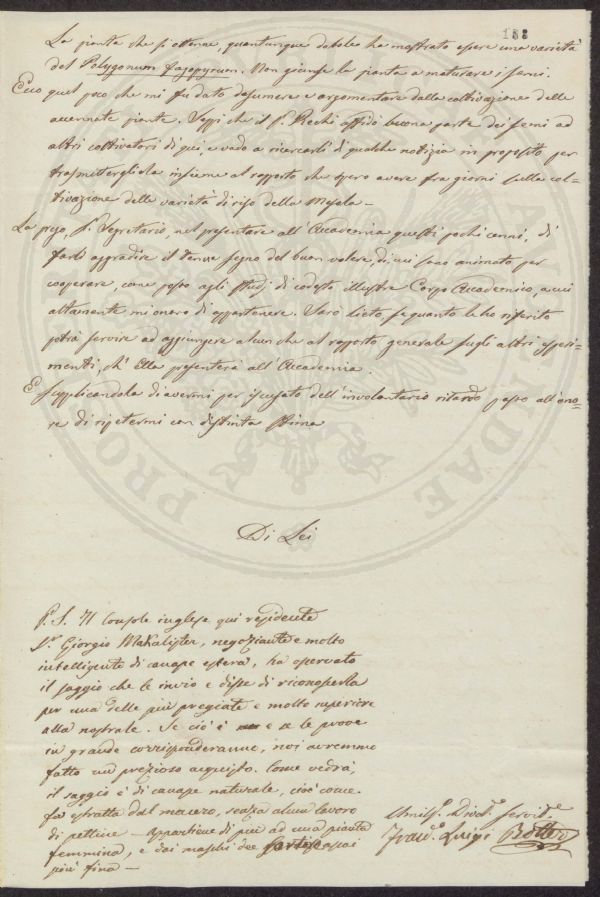 153
La pianta che si ottenne, quantunque debole ha mostrato essere una varietà
del Polygonum fagopyrum. Non giunse la pianta a maturare i semi.
Ecco quel poco che mi fu dato desumere e argomentare dalla coltivazione delle
accennate piante. Seppi che il S. Rechi affidò buona parte dei semi ad
altri coltivatori di qui, e vado a ricercarli di qualche notizia in proposito per
trasmettergliela insieme al rapporto che spero avere fra giorni sulla col-
tivazione delle varietà di riso della Mesola -
La prego, S. Segretario, nel presentare all'Accademia questi pochi cenni, di
farle aggradire il tenue segno del buon volere, di cui sono animato per
cooperare, come posso agli studj di codesto illustre Corpo Accademico, a cui
altamente mi onoro di appartenere. Sarò lieto, se quanto le ho riferito
potrà servire ad aggiungere alcunchè al rapporto generale sugli altri speri-
menti, ch'Ella presenterà all'Accademia.
E supplicandola di avermi per iscusato dell'involontario ritardo passo all'ono-
re di ripetermi con distinta stima
Di Lei
P. S. Il Console inglese qui residente
Sr. Giorgio MaKalister, negoziante e molto
intelligente di canape estera, ha osservato
il saggio che le invio e disse di riconoscerla
per una delle più pregiate e molto superiore
alla nostrale. Se ciò è e se le prove
in grande corrisponderanno, noi avremmo
fatto un prezioso acquisto. Come vedrà,
il saggio è di canape naturale, cioè come
fu estratta dal macero, senza alcun lavoro
di pettine - appartiene di più ad una pianta
femmina, e dai maschi dee sortire assai
più fina -
Umilso. Divotso. Servitre
Francso. Luigi Botter